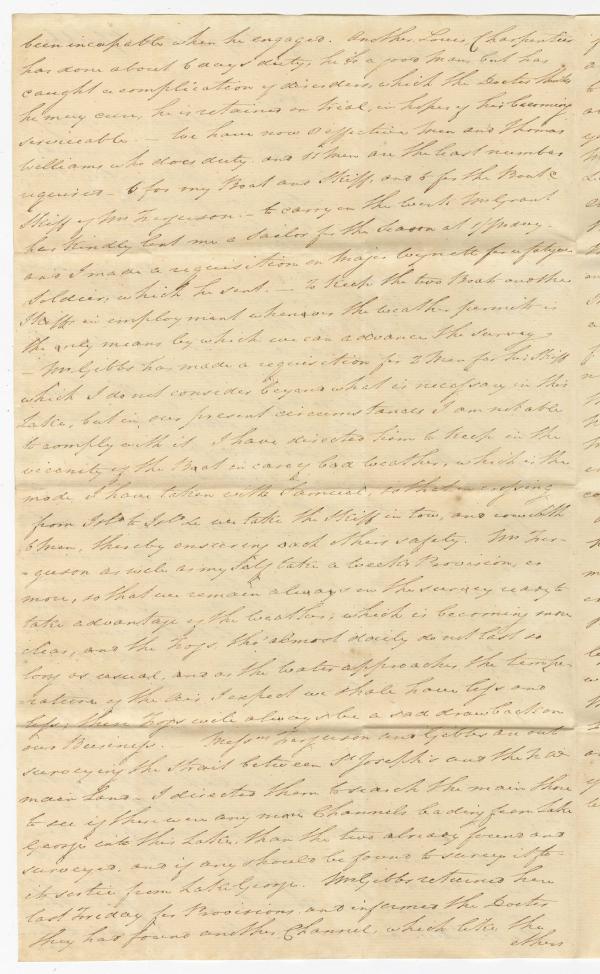 been incapable when he engaged. Another Louis Charpentier
has done about 6 days duty, he is a good man, but has
caught a complication of disorders, which the Doctor thinks
he may cure, he is retained on trial, in hopes of his becoming
serviceable — We have now effective Men and Thomas
Williams who does duty, and 15 Men are the least number
required — 6 for my Boat and Skiff, and 6 for the Boat &
Skiff of Mr Ferguson — to carry on the work Mr Grant
has kindly lent me a Sailor for the Season at
and I made a requisition on Major for a fatigue
Soldier, which he sent. — To keep the two Boats and the
Skiffs in employment whenever the weather permits is
the only means by which we can advance the survey
— Mr Gibbs has made a requisition for 2 Men for his Skiff
which I do not consider beyond what is necessary in this
Lake, but in our present circumstances I am not able
to comply with it. I have directed him to keep in the
vicinity of the Boat in case of bad weather, which is the
mode I have taken with Samuel, so that in crossing
from Isld to Isld we take the Skiff in tow, and row with
6 Men, thereby ensuring each others safety. Mr Fer-
-guson as well as my Self take a Week's Provision, or
more, so that we remain always on the survey ready to
take advantage of the weather, which is becoming more
clear, and the Fogs, tho' almost daily do not last so
long as usual, and as the water approaches the tempe-
-rature of the air I expect we shall have less and
less; these Fogs will always be a sad drawback on
our Business. Messrs Ferguson and Gibbs are out
surveying the Strait between St Joseph's and the
main Land — I directed them to search the main shore
to see if there were any more Channels leading from Lake
George into this Lake, than the two already found and
surveyed, and if any should be found to survey it to
its sortie from Lake George. Mr Gibbs returned here
last Friday for Provisions, and informed the Doctor
they had found another Channel, which like the
others